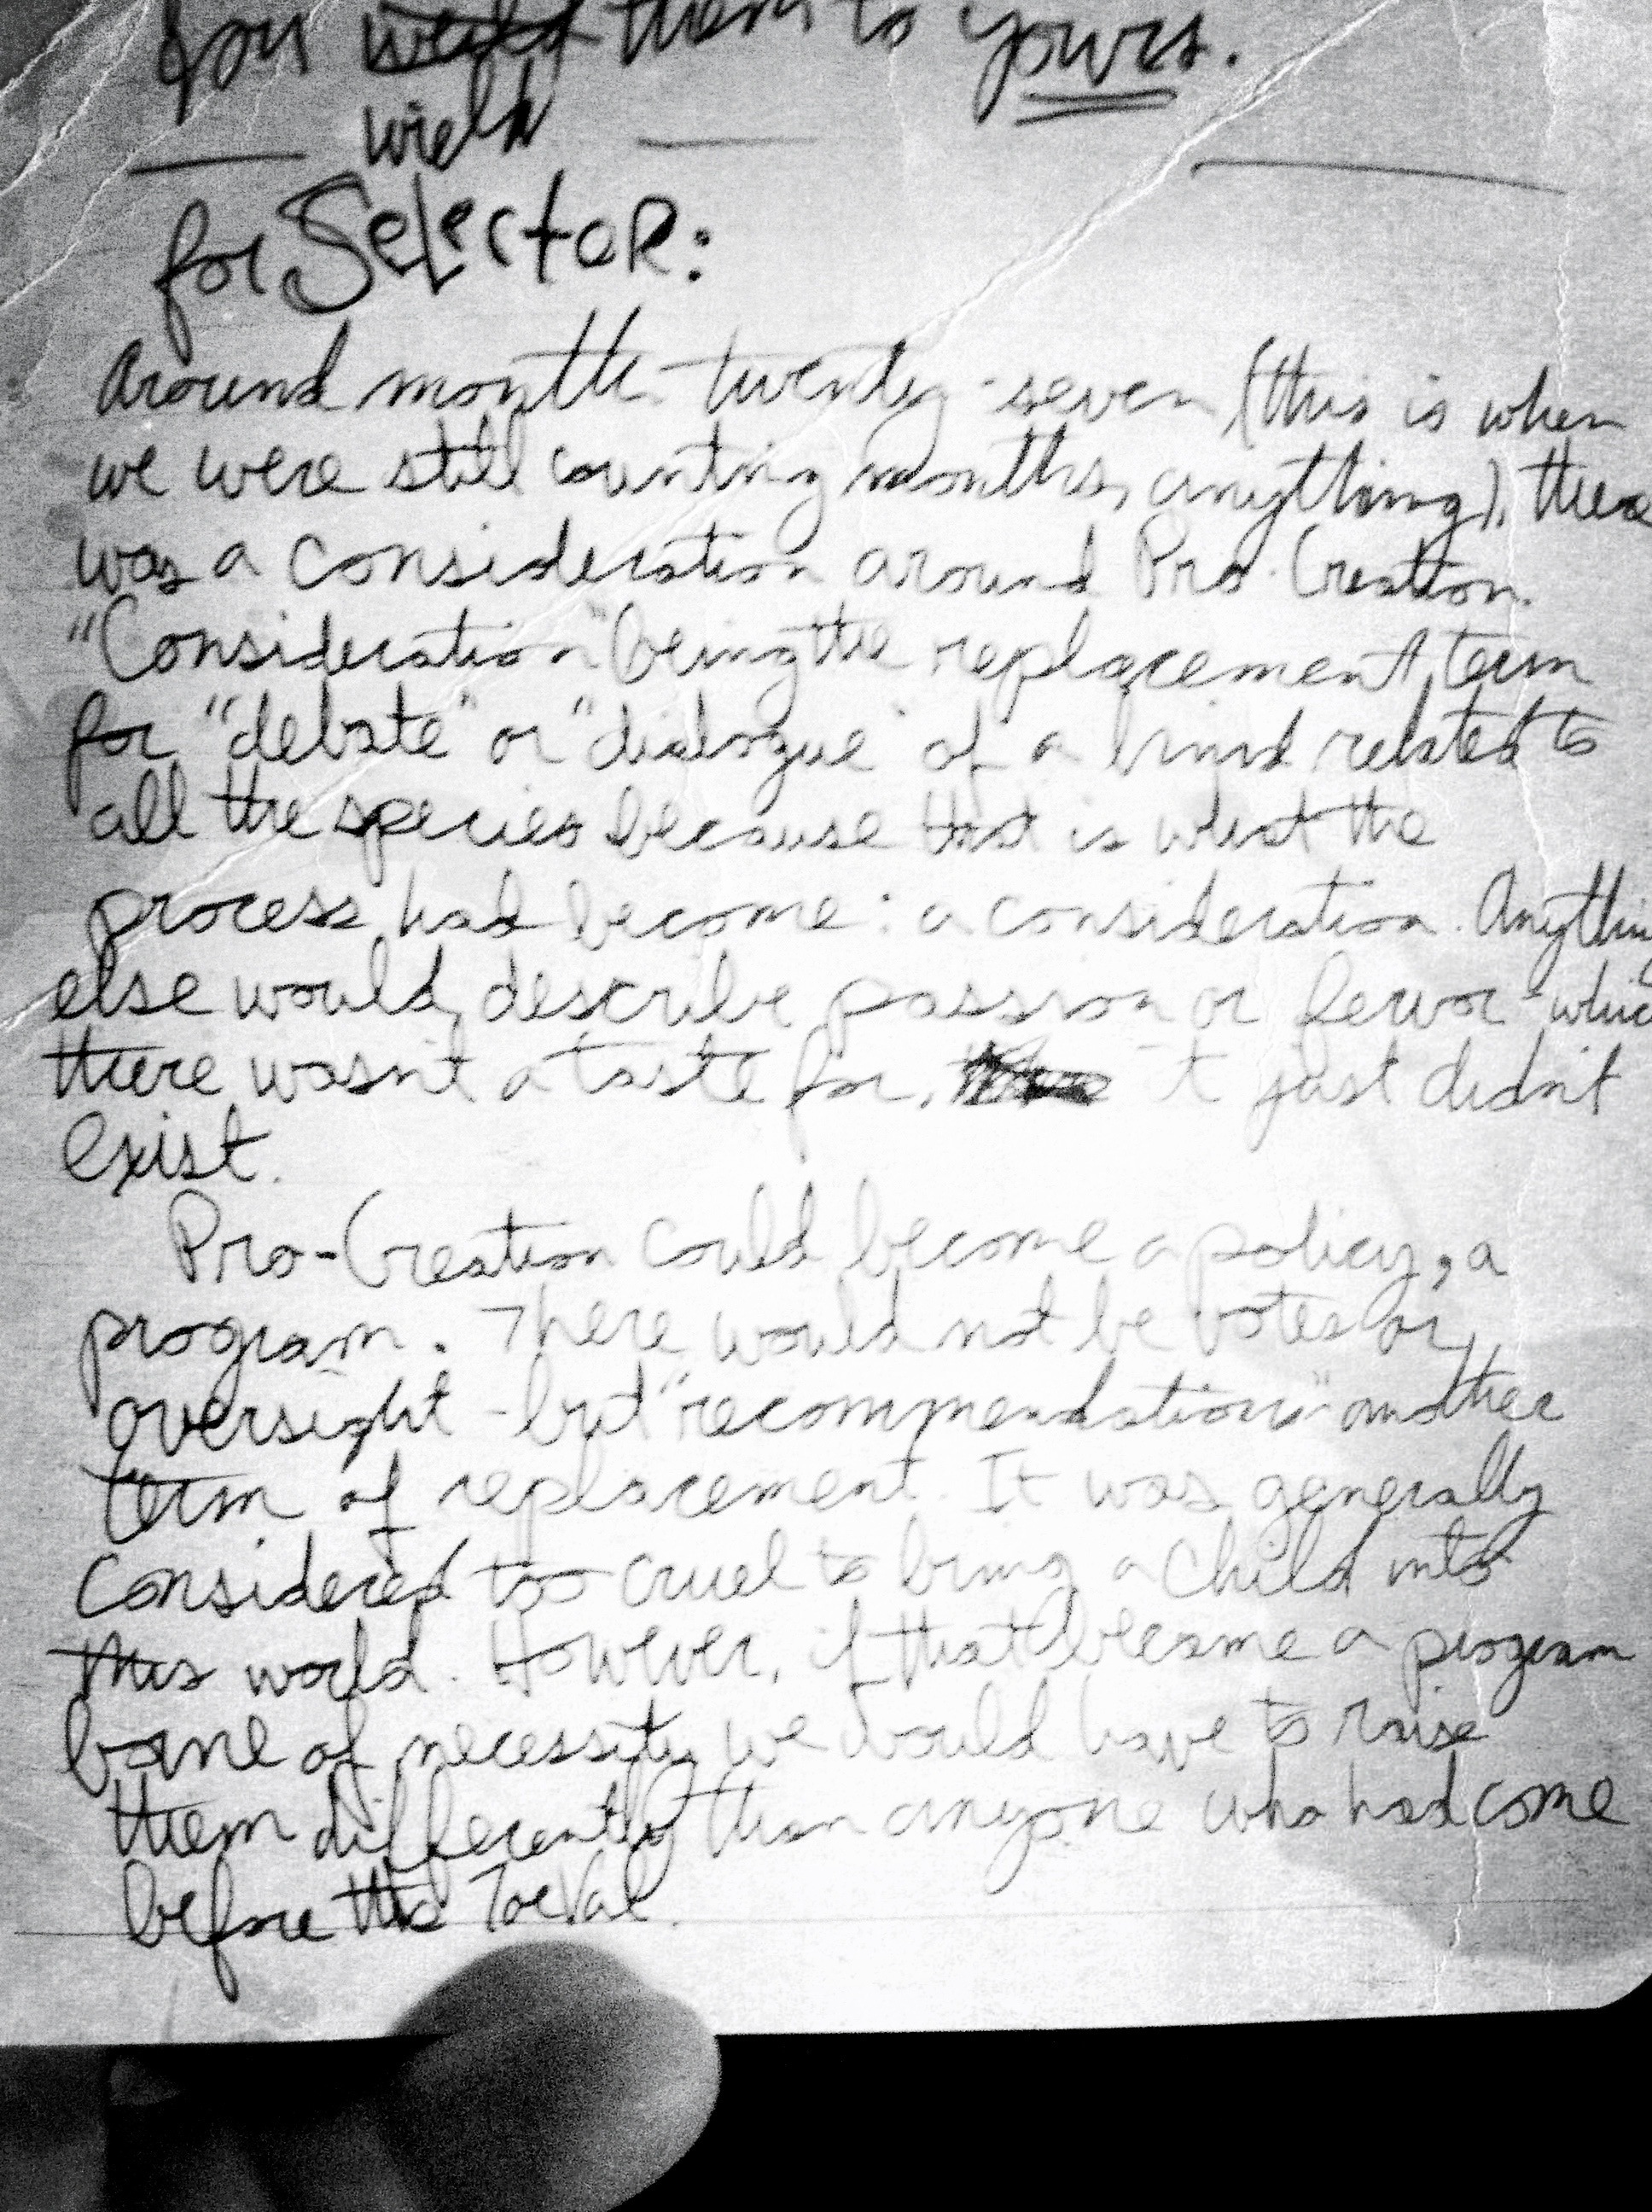 you weild them to yours.
wield
for Selector:
Around month twenty-seven (this is when
we were still counting months, anything), there
was a consideration around Pro-Creation.
"Consideration" being the replacement term
for "debate" or "dialogue" of a kind related to
all the species because that is what the
process had become: a consideration. Anything
else would describe passion or fervor - which
there wasn't a taste for. It just didn't
exist.
Pro-Creation could become a policy, a
program. There would not be votes or
oversight - but "recommendations" another
term of replacement. It was generally
considered too cruel to bring a child into
this world. However, if that became a program
borne of necessity we would have to raise
them differently than anyone who had come
before the